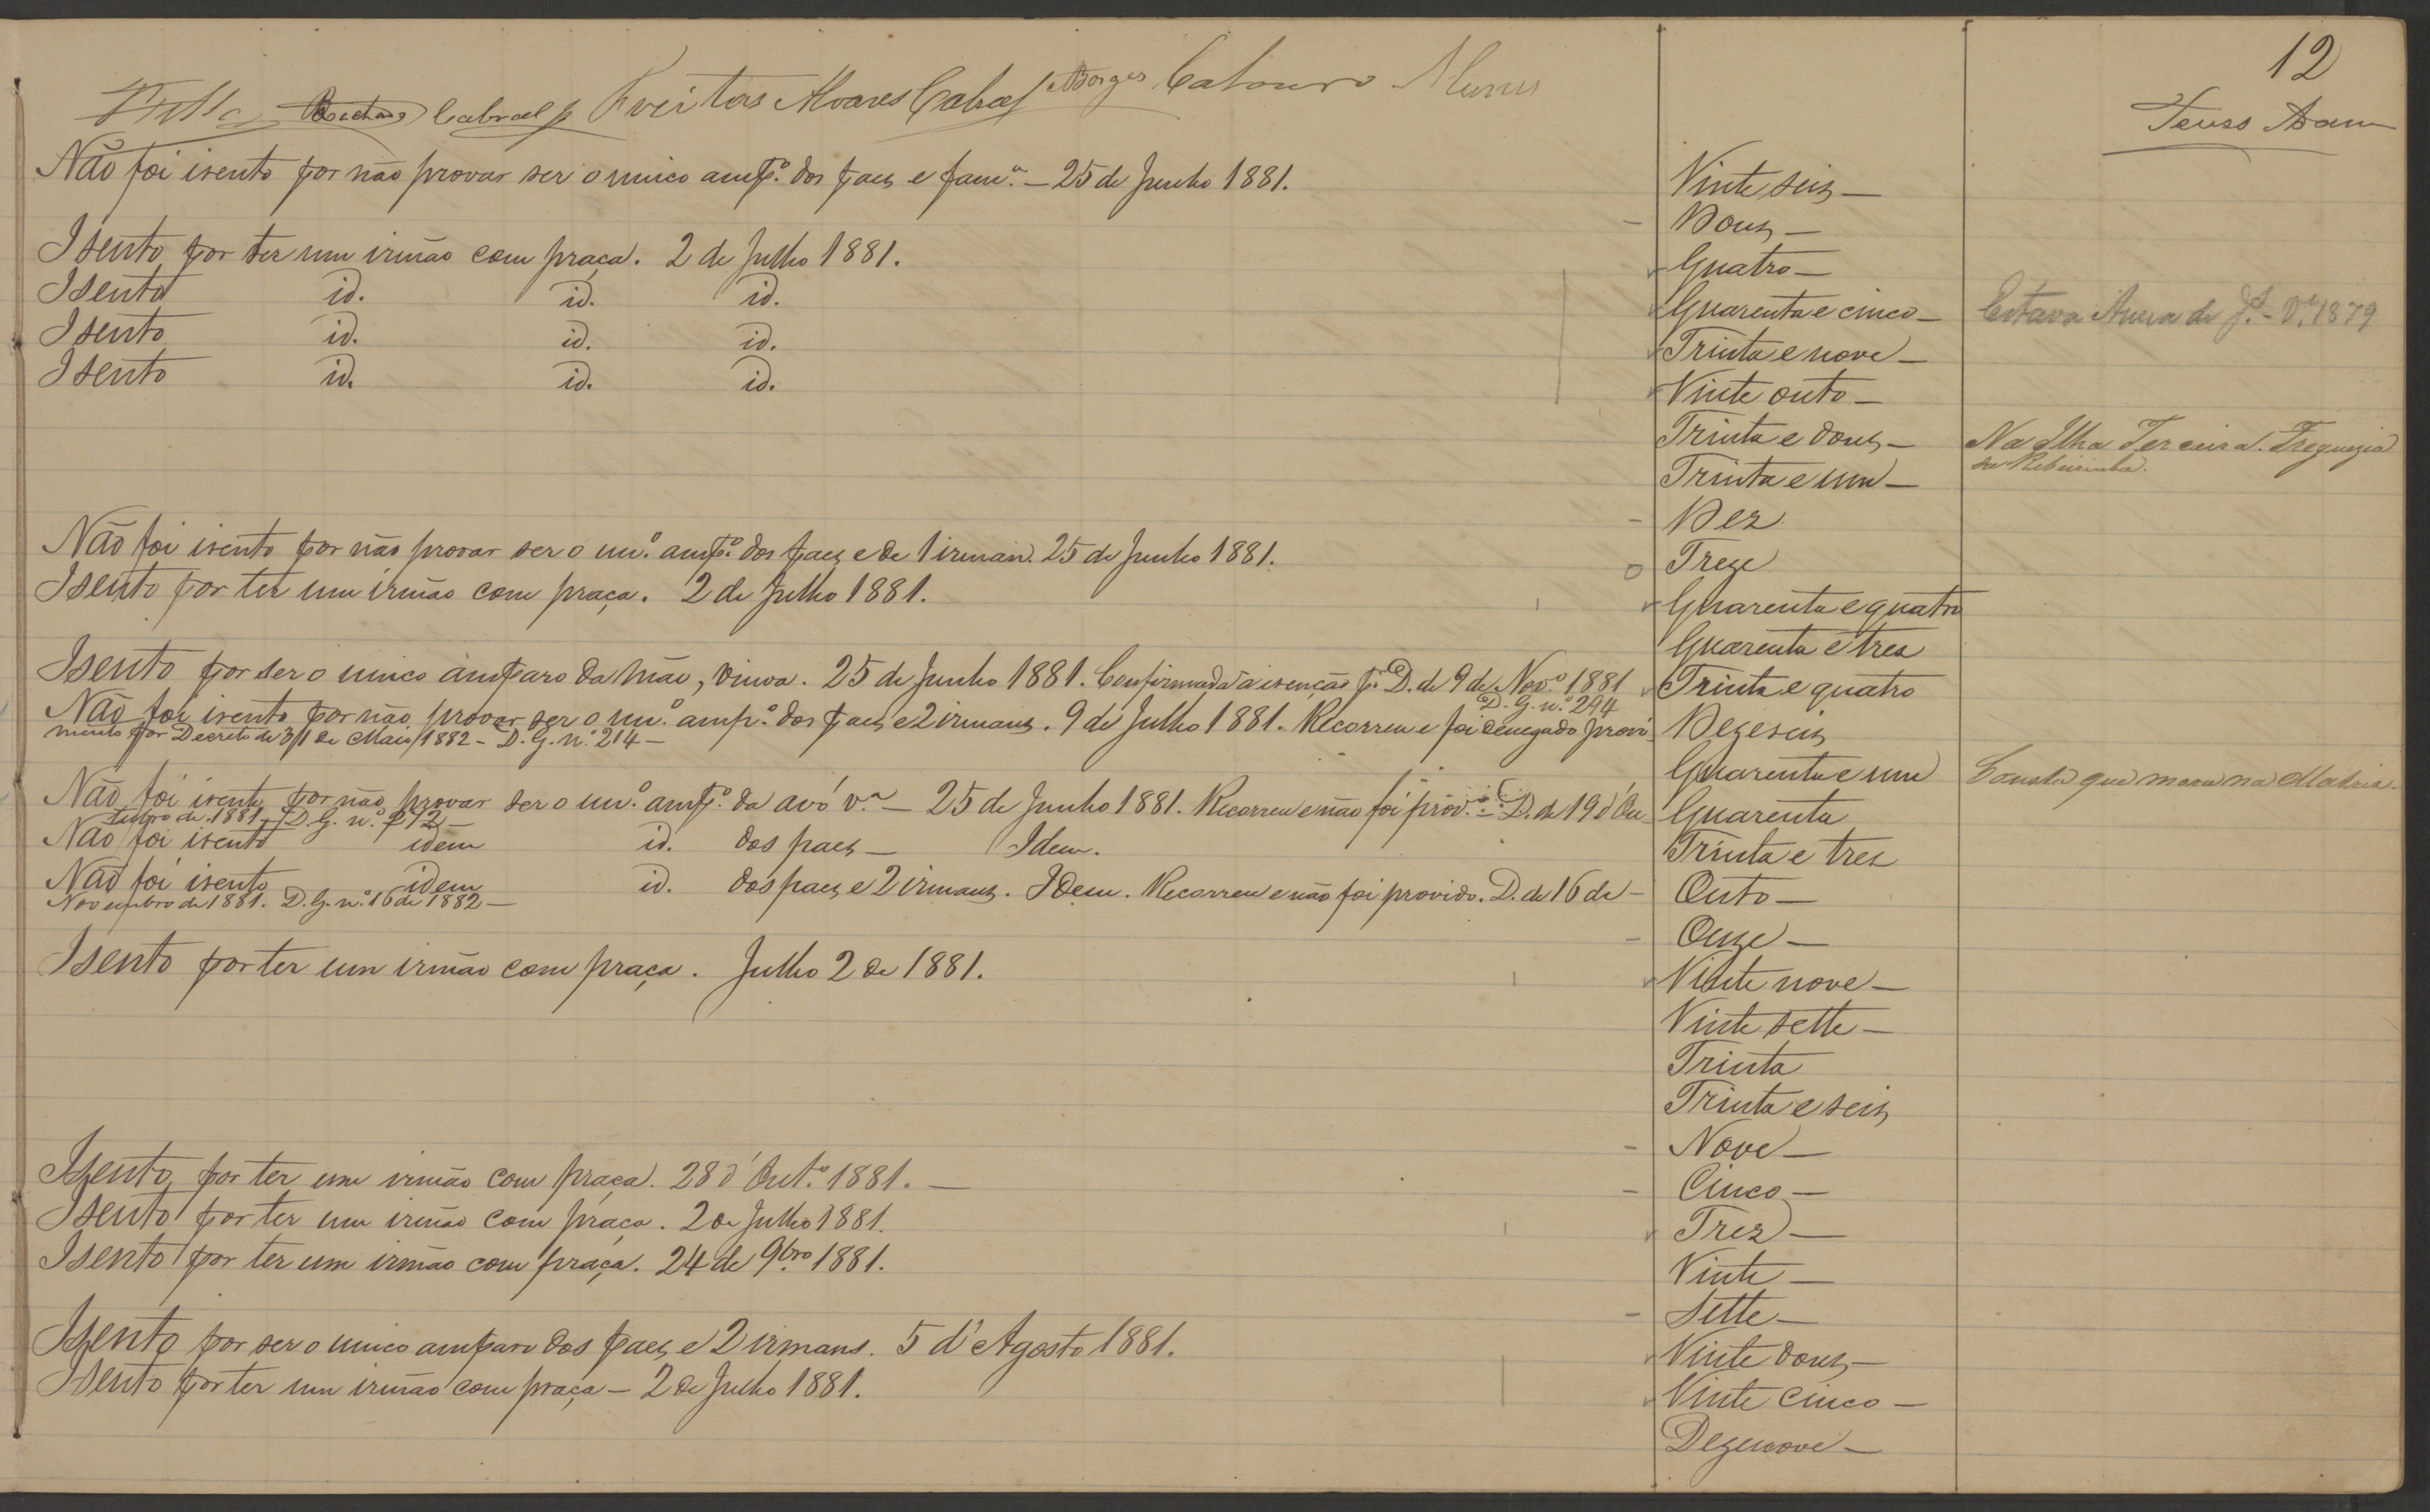 12
Cabral Freitas Alvares Cabral Borges
Não foi isento por não provar ser o unico amp.º dos paes e fam.ª — 25 de Junho 1881.
Vinte seis —
Dous —
Isento por ter um irmão com praça. 2 de Julho 1881.
Quatro —
Isento id. id. id.
Quarenta e cinco —
Isento id. id. id.
Trinta e nove —
Isento id. id. id.
Vinte outo —
Trinta e dous —
Na Ilha Terceira. Freguezia
da Ribeirinha.
Trinta e um —
Dez
Não foi isento por não provar ser o un.º amp.º dos paes e de 1 irman. 25 de Junho 1881.
Treze
Isento por ter um irmão com praça. 2 de Julho 1881.
Quarenta e quatro
Quarenta e tres
Isento por ser o unico amparo da mãe, viuva. 25 de Junho 1881. Confirmada a isenção p.r D. de 9 de Nov.º 1881
D. G. n.º 294
Trinta e quatro
Não foi isento por não provar ser o un.º amp.º dos paes e 2 irmans. 9 de Julho 1881. Recorreu e foi denegado provi-
mento por Decreto de 31 de Maio 1882 — D. G. n.º 214 —
Dezeseis
Quarenta e um
Consta que mora na Matriz.
Não foi isento por não provar ser o un.º amp.º da avó v.ª — 25 de Junho 1881. Recorreu e não foi prov.º — D. de 19 d'Ou-
tubro de 1881. D. G. n.º 272 —
Quarenta
Não foi isento idem id. dos paes — Idem.
Trinta e tres
Não foi isento idem id. dos paes e 2 irmans. Idem. Recorreu e não foi provido. D. de 16 de —
Novembro de 1881. D. G. n.º 16 de 1882 —
Outo —
Onze —
Isento por ter um irmão com praça. Julho 2 de 1881.
Vinte nove —
Vinte sette —
Trinta
Trinta e seis
Nove —
Isento por ter um irmão com praça. 28 d'Out.º 1881. —
Cinco —
Isento por ter um irmão com praça. 2 de Julho 1881.
Trez —
Isento por ter um irmão com praça. 24 de 9bro 1881.
Vinte —
Sette —
Isento por ser o unico amparo dos paes e 2 irmans. 5 d'Agosto 1881.
Vinte dous —
Isento por ter um irmão com praça — 2 de Julho 1881.
Vinte cinco —
Dezenove —